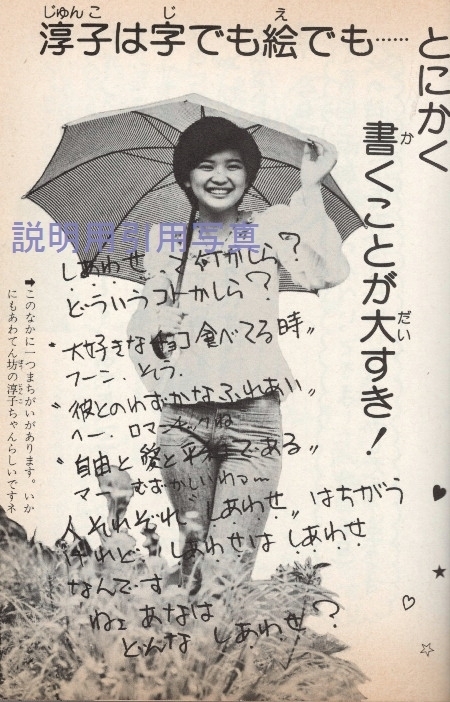 淳子は字でも絵でも……
とにかく
書くことが大すき！
説明用引用写真
しあわせ…って何かしら？
どういうコトーかしら？
〝大好きなチョコ食べてる時〟
フーン．そう．
〝彼とのわずかなふれあい〟
ヘー．ロマンチックね
〝自由と愛と平和である〟
マー．むずかしいわァー
人それぞれ〝しあわせ〟はちがう
けれど…しあわせはしあわせ
なんです
ねェあなは
どんなしあわせ？
➡このなかに一つまちがいがあります。いか
にもあわてん坊の淳子ちゃんらしいですネ